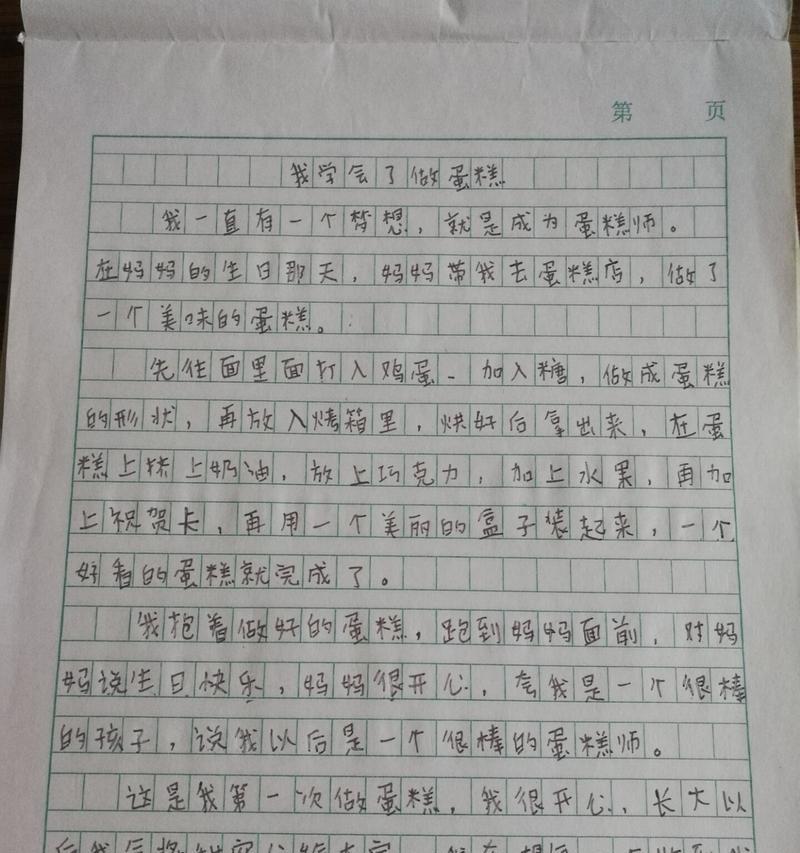 第 页
我学会了做蛋糕
我一直有一个梦想，就是成为蛋糕师。
在妈妈的生日那天，妈妈带我去蛋糕店，做了
一个美味的蛋糕。
先往面里面打入鸡蛋、加入糖，做成蛋糕
的形状，再放入烤箱里，烘好后拿出来，在蛋
糕上抹上奶油，放上巧克力，加上水果，再加
上祝贺卡，再用一个美丽的盒子装起来，一个
好看的蛋糕就完成了。
我抱着做好的蛋糕，跑到妈妈面前，对妈
妈说生日快乐，妈妈很开心，夸我是一个很棒
的孩子，说我以后是一个很棒的蛋糕师。
这是我第一次做蛋糕，我很开心，长大以